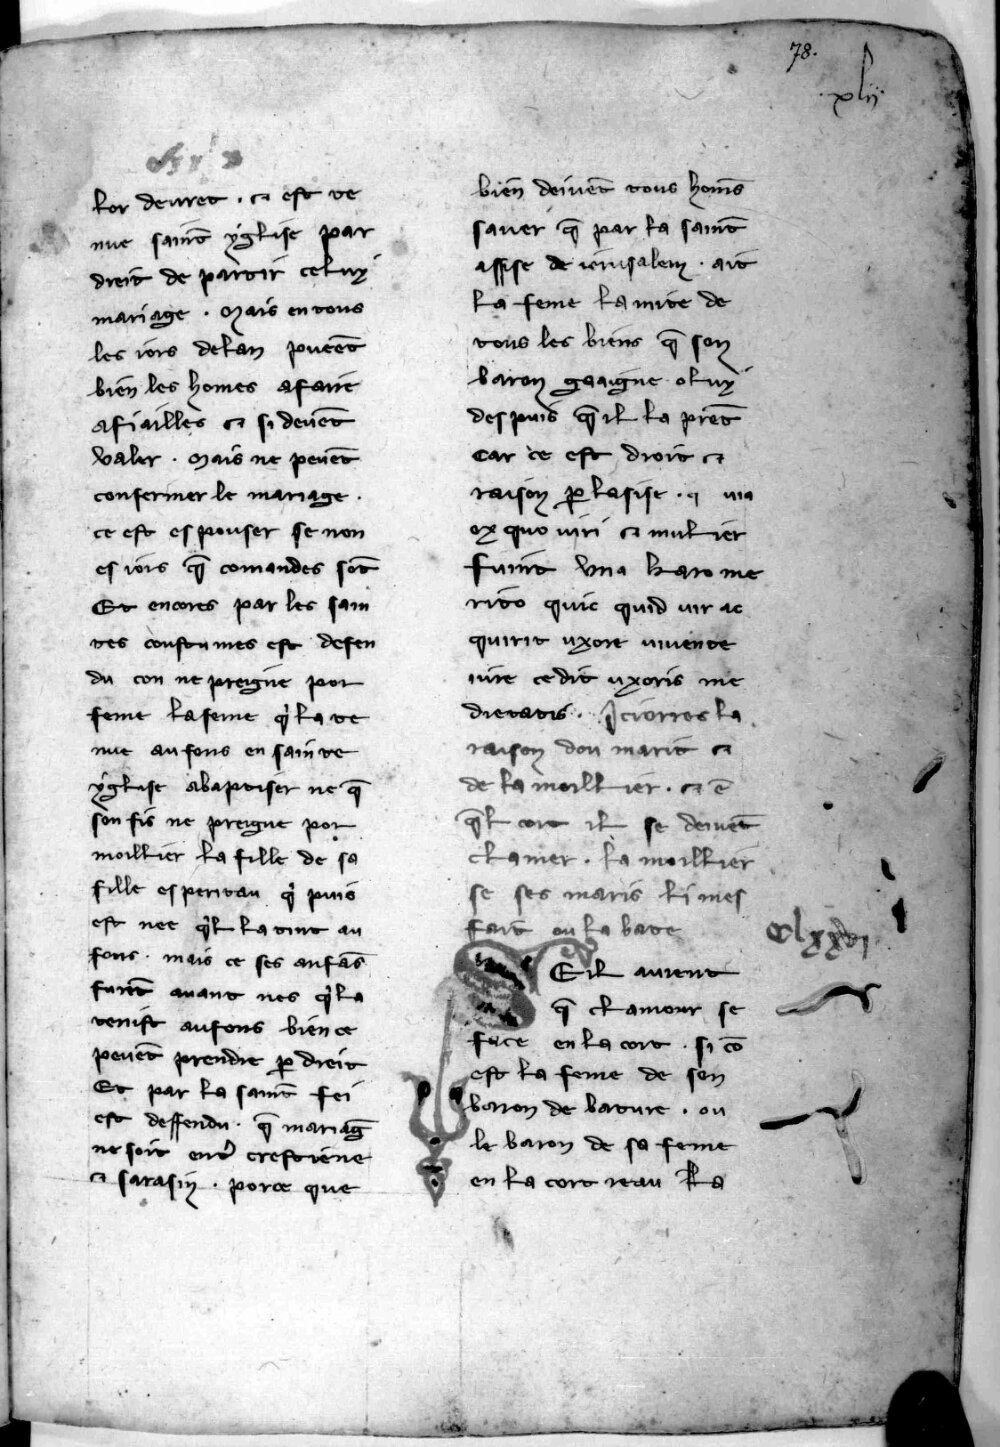 78.
xlii
lor deuret . et est te
nue saint yglise par
dreit de partir celuy
mariage . Mais en tous
les iors delan pueent
bien les homes afaire
afiailles et si deuent
valer . Mais ne peuent
confermer le mariage .
ce est espouser se non
es iors que comandes sont
Et encores par les sain
tes coustumes est defen
du con ne preigne por
feme la feme qui la te
nue au fons en sainte
yglise abaptiser ne que
son fis ne preigne por
moillier la fille de sa
fille esperitau qui puis
est nee quil la tint au
fons . mais ce ses anfans
furent auant nes qui la
tenist aufons bien ce
peuent prendre par dreit
Et par la saint fei
est deffendu . que mariage
ne soit entre crestiene
et sarasin . porce que
bien deiuent tous homes
sauer que par la saint
assise de ierusalem . ait
la feme la mite de
tous les biens que son
baron gaaigne o luy
despuis que il la prent
car ce est droit et
raison par lasise .
ex quo uiri et mulier
fuint vna karo me
rito quic quid uir ac
quirit uxore uiuente
iure cedit uxoris me
dietatis . Iciorres la
raison dou marit et
de la moillier . et en
quel cort il se deiuent
clamer . la moillier
se ses maris li mes
fait ou la bate
clxxvi
Eil auient
que clamour se
face en la cort . si con
est la feme de son
baron de bature . ou
le baron de sa feme
en la cort reau La